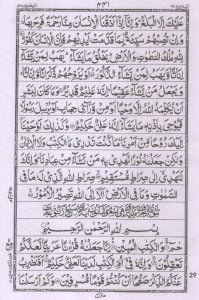 ٤٤١
عَلَيْكَ اِلَّا الْبَلٰغُ وَاِنَّآ اِذَآ اَذَقْنَا الْاِنْسَانَ مِنَّا رَحْمَةً فَرِحَ بِهَا
وَاِنْ تُصِبْهُمْ سَيِّئَةٌۢ بِمَا قَدَّمَتْ اَيْدِيْهِمْ فَاِنَّ الْاِنْسَانَ كَفُوْرٌ
لِلّٰهِ مُلْكُ السَّمٰوٰتِ وَالْاَرْضِ يَخْلُقُ مَا يَشَآءُ يَهَبُ لِمَنْ يَّشَآءُ
اِنَاثًا وَّيَهَبُ لِمَنْ يَّشَآءُ الذُّكُوْرَ اَوْ يُزَوِّجُهُمْ ذُكْرَانًا وَّ
اِنَاثًا وَيَجْعَلُ مَنْ يَّشَآءُ عَقِيْمًا اِنَّهٗ عَلِيْمٌ قَدِيْرٌ وَمَا كَانَ لِبَشَرٍ
اَنْ يُّكَلِّمَهُ اللّٰهُ اِلَّا وَحْيًا اَوْ مِنْ وَّرَآئِ حِجَابٍ اَوْ يُرْسِلَ رَسُوْلًا
فَيُوْحِيَ بِاِذْنِهٖ مَا يَشَآءُ اِنَّهٗ عَلِيٌّ حَكِيْمٌ وَكَذٰلِكَ اَوْحَيْنَآ
اِلَيْكَ رُوْحًا مِّنْ اَمْرِنَا مَا كُنْتَ تَدْرِيْ مَا الْكِتٰبُ وَلَا الْاِيْمَانُ
وَلٰكِنْ جَعَلْنٰهُ نُوْرًا نَّهْدِيْ بِهٖ مَنْ نَّشَآءُ مِنْ عِبَادِنَا وَاِنَّكَ
لَتَهْدِيْٓ اِلٰى صِرَاطٍ مُّسْتَقِيْمٍ صِرَاطِ اللّٰهِ الَّذِيْ لَهٗ مَا فِي
السَّمٰوٰتِ وَمَا فِي الْاَرْضِ اَلَآ اِلَى اللّٰهِ تَصِيْرُ الْاُمُوْرُ
بِسْمِ اللّٰهِ الرَّحْمٰنِ الرَّحِيْمِ
حٰمٓ وَالْكِتٰبِ الْمُبِيْنِ اِنَّا جَعَلْنٰهُ قُرْءٰنًا عَرَبِيًّا لَّعَلَّكُمْ
تَعْقِلُوْنَ وَاِنَّهٗ فِيْٓ اُمِّ الْكِتٰبِ لَدَيْنَا لَعَلِيٌّ حَكِيْمٌ اَفَنَضْرِبُ
عَنْكُمُ الذِّكْرَ صَفْحًا اَنْ كُنْتُمْ قَوْمًا مُّسْرِفِيْنَ وَكَمْ اَرْسَلْنَا
29